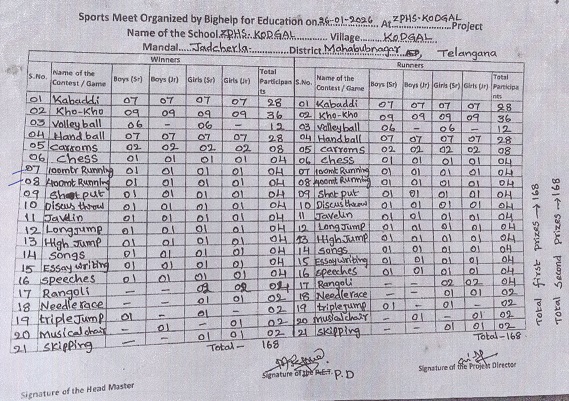 Sports Meet Organized by Bighelp for Education on 26-01-2026 At ZPHS-KODGAL Project
Name of the School ZPHS. KODGAL Village KODGAL
Mandal Jadcherla District Mahabubnagar Telangana
Winners Runners
S.No. Name of the Contest / Game Boys (Sr) Boys (Jr) Girls (Sr) Girls (Jr) Total Participants S.No. Name of the Contest / Game Boys (Sr) Boys (Jr) Girls (Sr) Girls (Jr) Total Participants
01 Kabaddi 07 07 07 07 28 01 Kabaddi 07 07 07 07 28
02 Kho-Kho 09 09 09 09 36 02 Kho-Kho 09 09 09 09 36
03 Volleyball 06 - 06 - 12 03 Volleyball 06 - 06 - 12
04 Handball 07 07 07 07 28 04 Handball 07 07 07 07 28
05 Carroms 02 02 02 02 08 05 Carroms 02 02 02 02 08
06 Chess 01 01 01 01 04 06 Chess 01 01 01 01 04
07 100mtr Running 01 01 01 01 04 07 100mt Running 01 01 01 01 04
08 400mt Running 01 01 01 01 04 08 400mt Running 01 01 01 01 04
09 Shot put 01 01 01 01 04 09 Shot put 01 01 01 01 04
10 Discus throw 01 01 01 01 04 10 Discus throw 01 01 01 01 04
11 Javelin 01 01 01 01 04 11 Javelin 01 01 01 01 04
12 Longjump 01 01 01 01 04 12 Longjump 01 01 01 01 04
13 High Jump 01 01 01 01 04 13 High Jump 01 01 01 01 04
14 Songs 01 01 01 01 04 14 Songs 01 01 01 01 04
15 Essay writing 01 01 01 01 04 15 Essaywriting 01 01 01 01 04
16 Speeches 01 01 01 01 04 16 Speeches 01 01 01 01 04
17 Rangoli - - 02 02 04 17 Rangoli - - 02 02 04
18 Needlerace - - 01 01 02 18 Needlerace - - 01 01 02
19 triple Jump 01 - 01 - 02 19 triplejump 01 - 01 - 02
20 musicalchair - 01 - 01 02 20 musicalchair - 01 - 01 02
21 Skipping - - 01 01 02 21 Skipping - - 01 01 02
Total - 168 Total - 168
Total first prizes → 168
Total second prizes → 168
Signature of the Head Master
Signature of the P.E.T. P.D
Signature of the Projekt Director